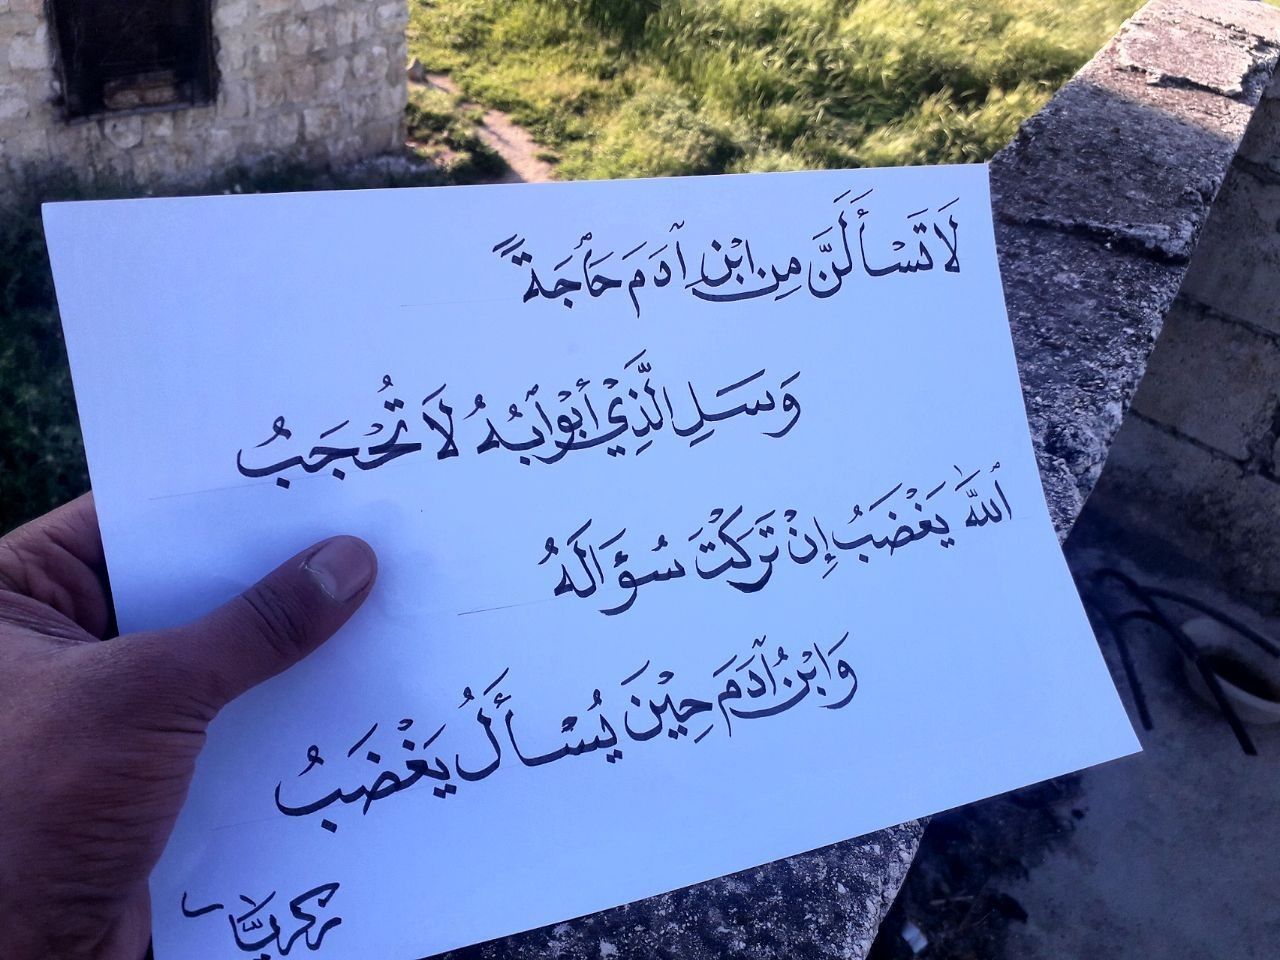 لَا تَسْأَلَنَّ مِنِ ابْنِ آدَمَ حَاجَةً
وَسَلِ الَّذِيْ أَبْوَابُهُ لَا تُحْجَبُ
اَللّٰهُ يَغْضَبُ إِنْ تَرَكْتَ سُؤَالَهُ
وَابْنُ آدَمَ حِيْنَ يُسْأَلُ يَغْضَبُ
زكريَّا